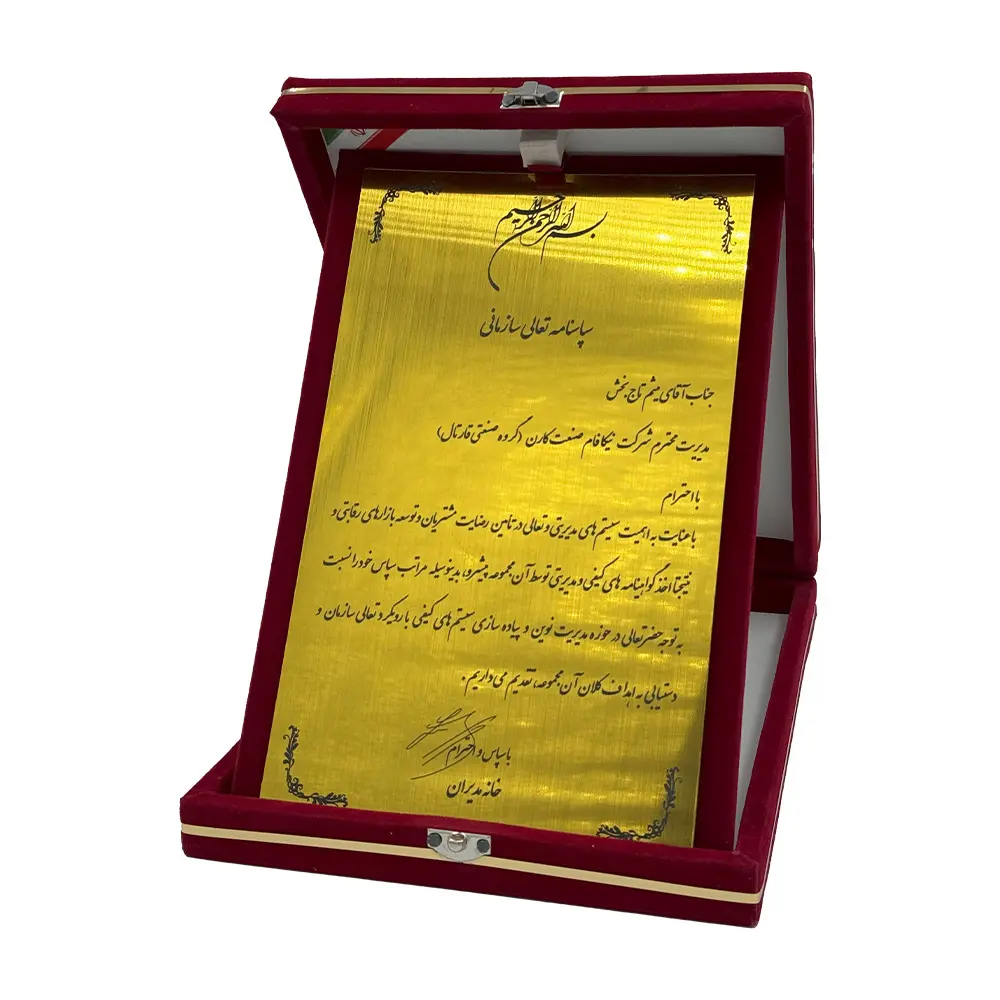 بسم الله الرحمن الرحیم
سپاسنامه تعالی سازمانی
جناب آقای میثم تاج بخش
مدیریت محترم شرکت نیکافام صنعت کارن (گروه صنعتی قارتال)
با احترام
با عنایت به اهمیت سیستم های مدیریتی و تعالی در تامین رضایت مشتریان و توسعه بازارهای رقابتی و
نتیجتا اخذ گواهینامه های کیفی و مدیریتی توسط آن مجموعه پیشرو، بدینوسیله مراتب سپاس خود را نسبت
به توجه حضرتعالی در حوزه مدیریت نوین و پیاده سازی سیستم های کیفی با رویکرد تعالی سازمان و
دستیابی به اهداف کلان آن مجموعه، تقدیم می داریم.
با سپاس و احترام
خانه مدیران